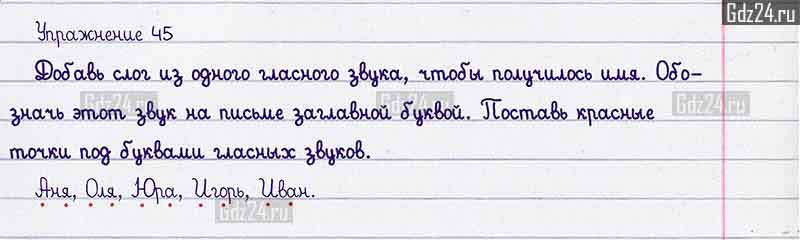 Gdz24.ru
Упражнение 45
Добавь слог из одного гласного звука, чтобы получилось имя. Обо-
значь этот звук на письме заглавной буквой. Поставь красные
Gdz24.ru Gdz24.ru Gdz24.ru
точки под буквами гласных звуков.
Аня, Оля, Юра, Игорь, Иван.
Gdz24.ru